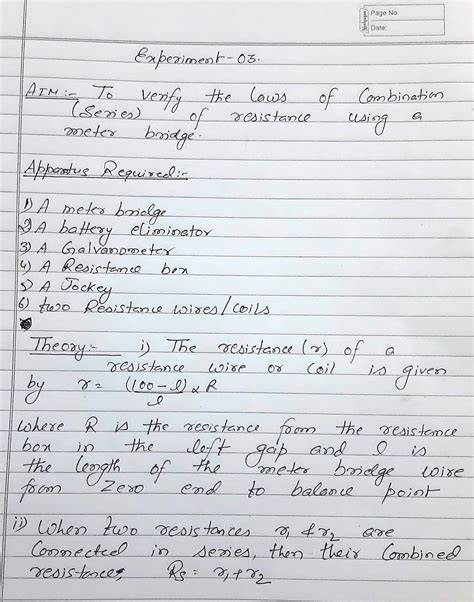 Page No.
Date:
Experiment-03.
AIM:- To verify the laws of Combination
(Series) of resistance using a
meter bridge.
Apparatus Required:-
1) A meter bridge
2) A battery eliminator
3) A Galvanometer
4) A Resistance box
5) A Jockey
6) two Resistance wires/coils
Theory:- i) The resistance (r) of a
resistance wire or coil is given
by r = (100-l)/l × R
where R is the resistance from the resistance
box in the left gap and l is
the length of the meter bridge wire
from zero end to balance point
ii) When two resistances r₁ & r₂ are
Connected in series, then their Combined
resistance, Rs = r₁+r₂